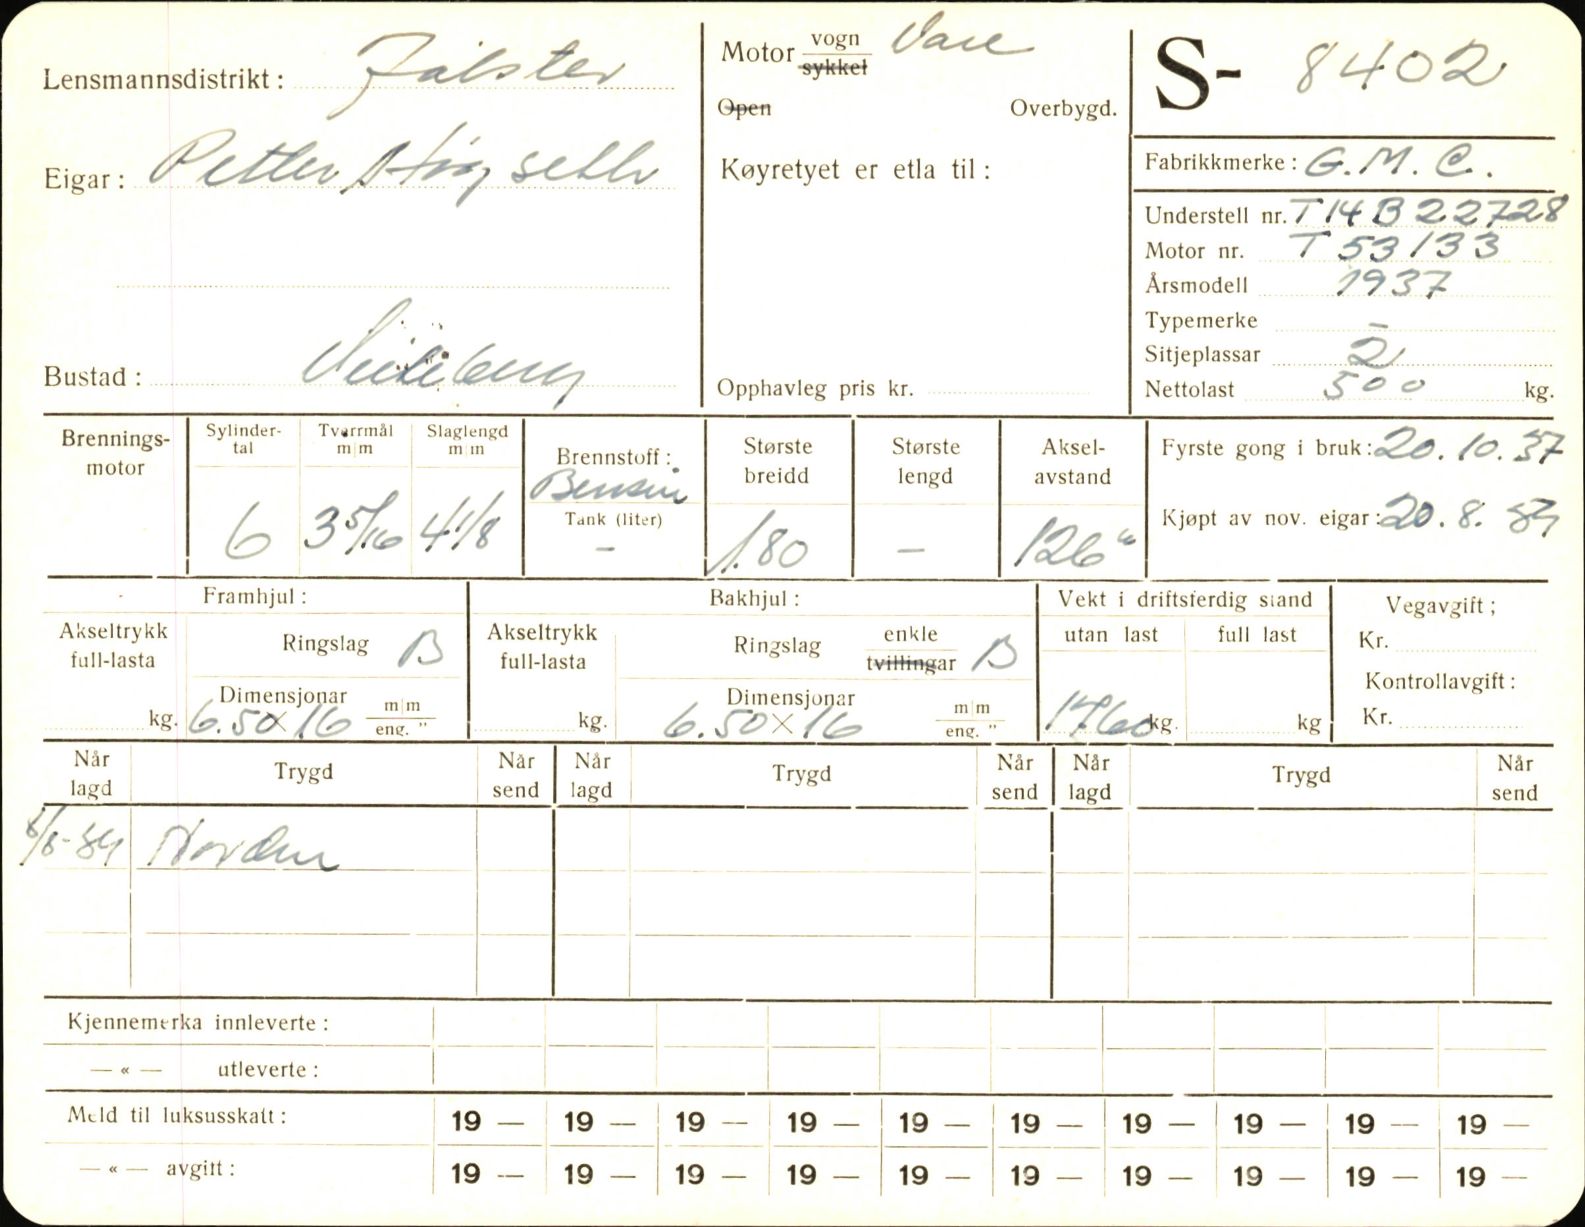 Lensmannsdistrikt: Jølster
Motor vogn Vare
sykkel
Open Overbygd.
S- 8402
Eigar: Petter Høgseth
Køyretyet er etla til:
Fabrikkmerke: G.M.C.
Understell nr. T14B22728
Motor nr. T 53133
Årsmodell 1937
Typemerke –
Sitjeplassar 2
Bustad:
Opphavleg pris kr.
Nettolast 500 kg.
Brennings-
motor
Sylinder-
tal
6
Tverrmål
m|m
3 5/16
Slaglengd
m|m
4 1/8
Brennstoff:
Bensin
Tank (liter)
–
Største
breidd
1.80
Største
lengd
–
Aksel-
avstand
126"
Fyrste gong i bruk: 20.10.37
Kjøpt av nov. eigar: 20.8.54
Framhjul:
Akseltrykk
full-lasta
kg.
Ringslag B
Dimensjonar
6.50 x 16 m|m
eng. "
Bakhjul:
Akseltrykk
full-lasta
kg.
Ringslag enkle
tvillingar B
Dimensjonar
6.50 x 16 m|m
eng. "
Vekt i driftsferdig stand
utan last full last
1760 kg. kg
Vegavgift;
Kr.
Kontrollavgift:
Kr.
Når
lagd Trygd Når
send Når
lagd Trygd Når
send Når
lagd Trygd Når
send
Norden
Kjennemerka innleverte:
— « — utleverte:
Meld til luksusskatt: 19 — 19 — 19 — 19 — 19 — 19 — 19 — 19 — 19 — 19 —
— « — avgitt: 19 — 19 — 19 — 19 — 19 — 19 — 19 — 19 — 19 — 19 —